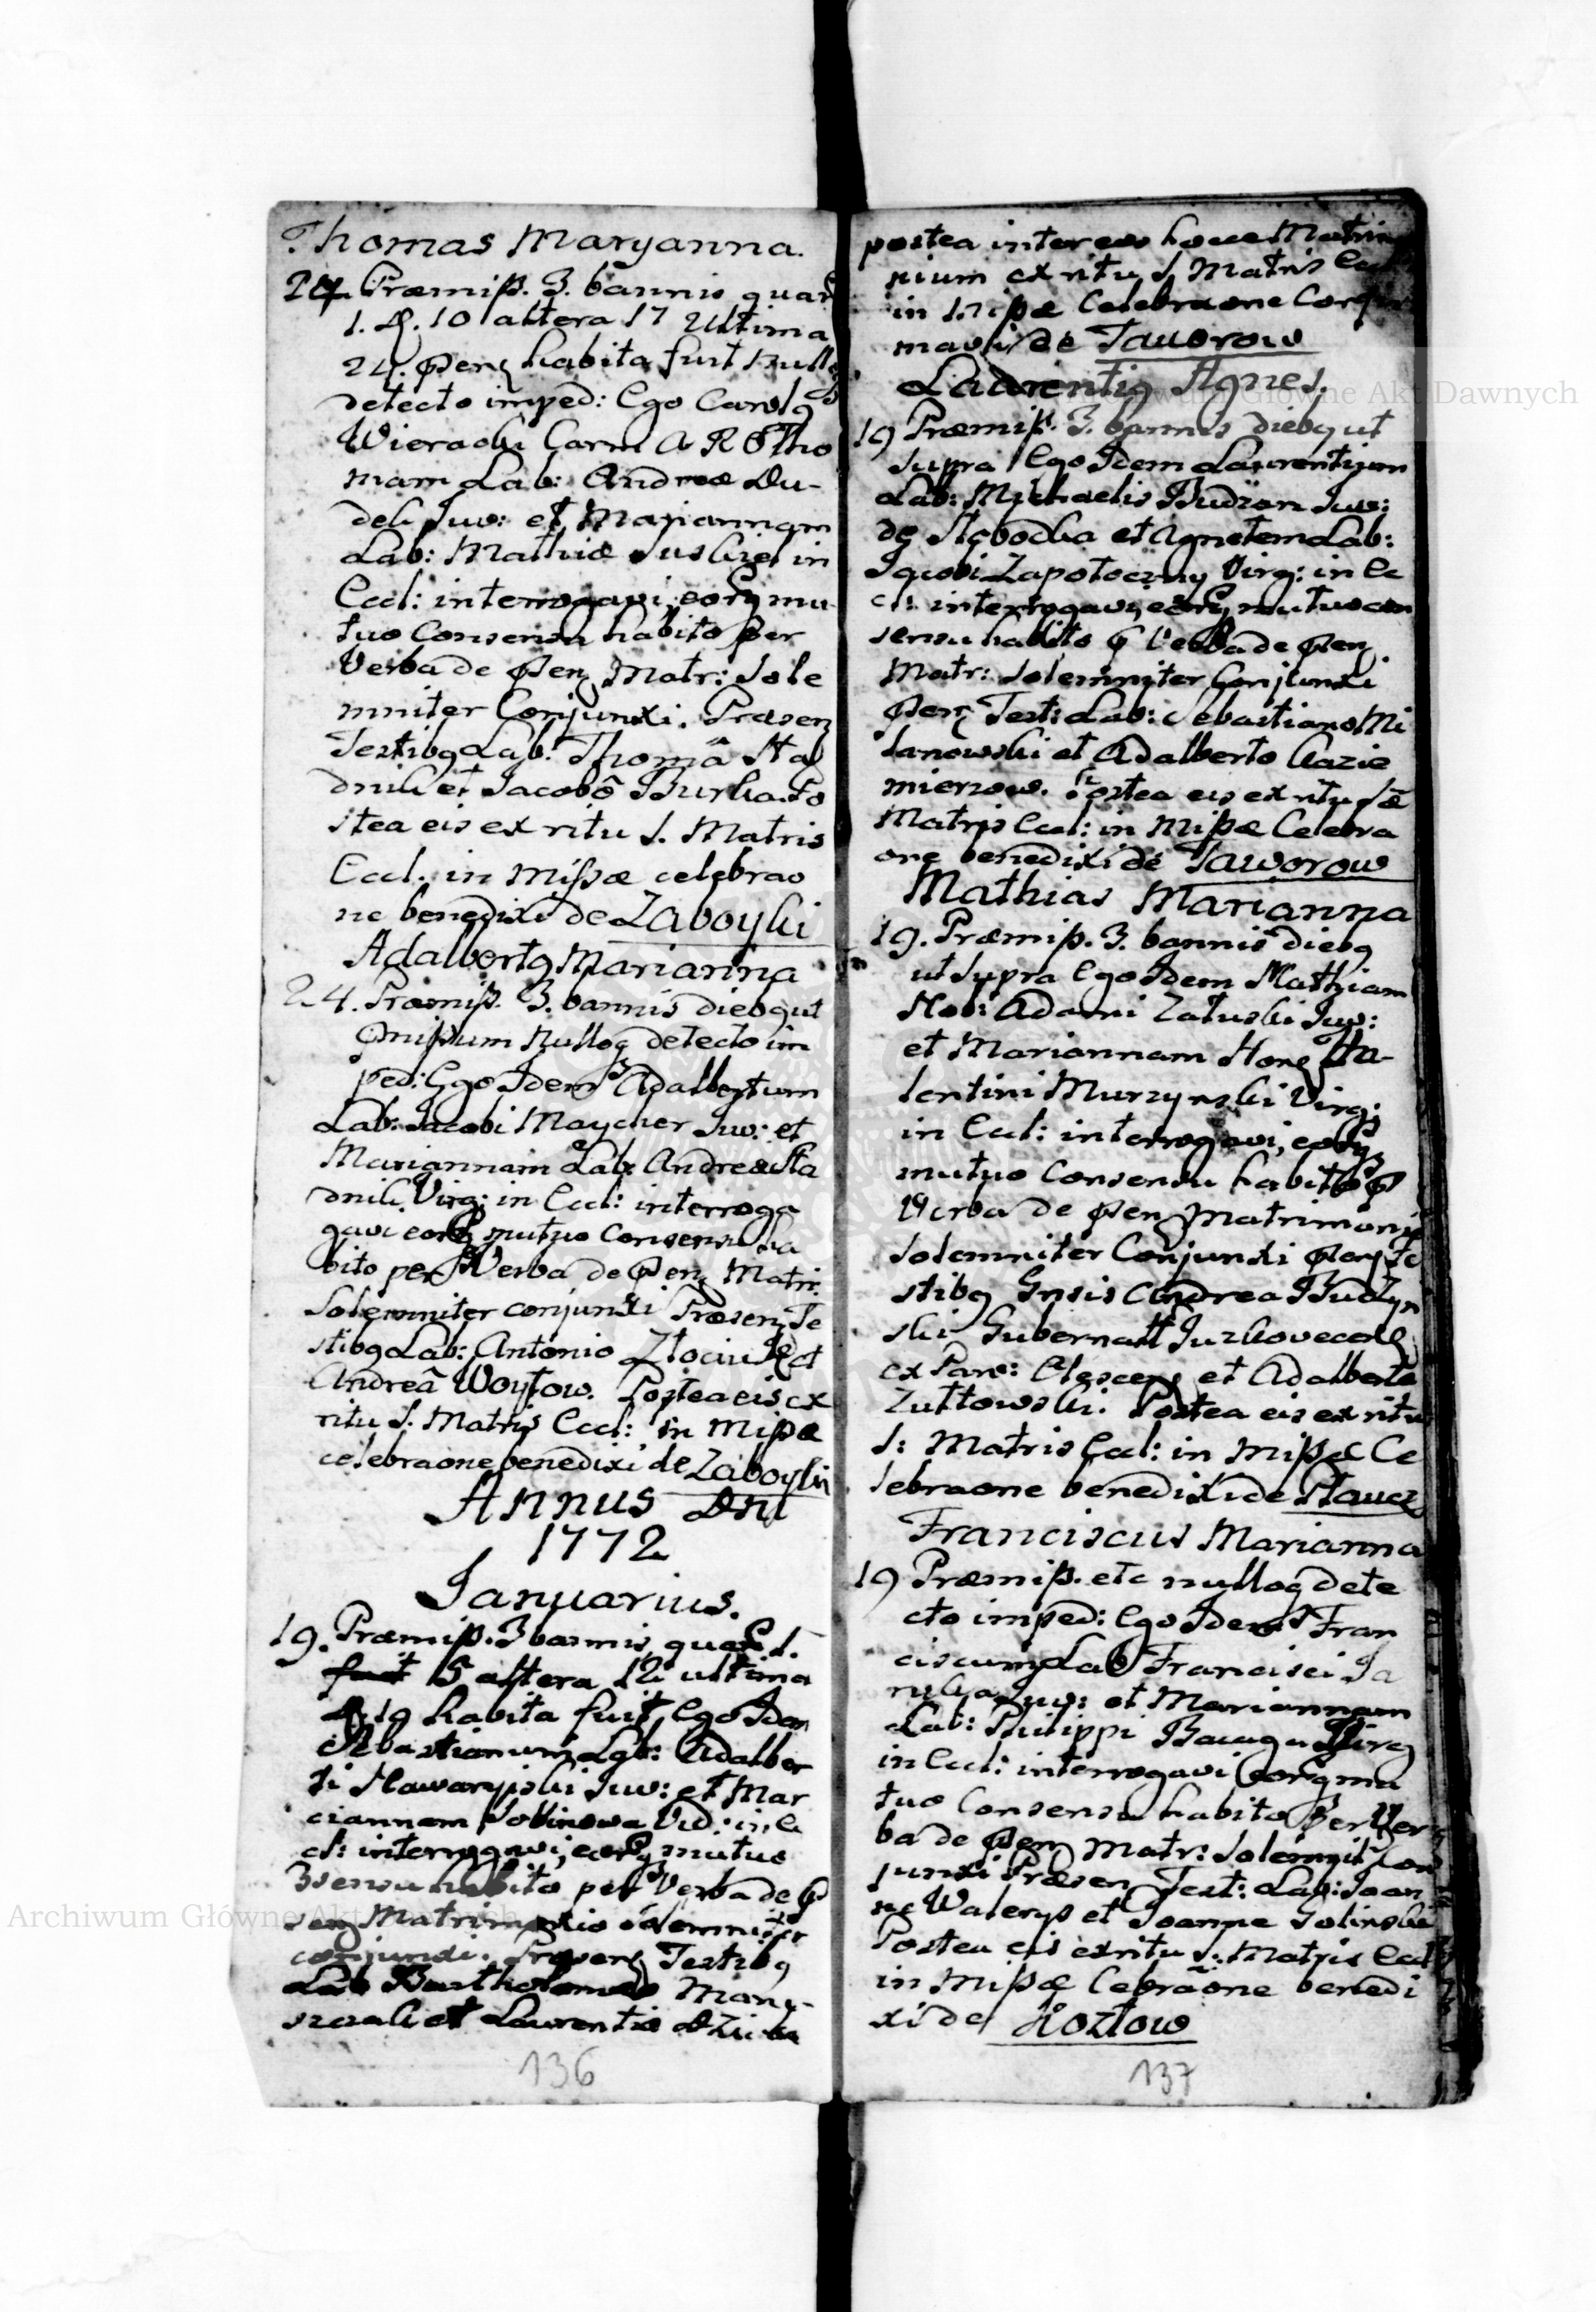 Thomas Maryanna.
24. Præmiss. 3. bannis quar
1. d. 10 altera 17 Ultima
24. præn habita fuit Null
detecto imped: Ego Carolq
Wieracki Carm A R O Tho
mam Lab: Andreæ Du-
dek Juv: et Mariannam
Lab: Mathiæ Suskiet in
Eccl: interrogavi, eorq mu
tuo Consensu habito per
Verba de præn Matr: Sole
mniter Conjunxi. Præsen
Testibq Lab: Thomâ Sta
dnik et Jacobô Burka. Po
stea eis ex ritu S. Matris
Eccl. in Missæ celebrao
ne benedixi de Zaboyki
Adalbertq Marianna
24. Præmiss. 3. bannis diebq ut
Nulloq detecto im
ped: Ego Idem Adalbertum
Lab: Jacobi Maycher Juv: et
Mariannam Lab: Andreæ Sta
dnik Virg: in Eccl: interroga
gavi eorq mutuo Consensu ha
bito per Verba de præn Matri:
Solemniter conjunxi Præsen Te
stibq Lab: Antonio et
Andreâ Woytow. Postea eis ex
ritu S. Matris Eccl: in Missæ
celebraone benedixi de Zaboyki
Annus Dni
1772
Januarius.
19. Præmiss. 3 bannis quar 1.
5 altera 12 ultima
19 habita fuit, Ego Idem
Sebastianum Lab: Adalber
ti Nawaryiski Juv: et Mar
ciannam Vid: in Ec
cl: interrogavi, eorq mutuo
3sensu habito per Verba de p
sen Matrimonio solemniter
conjunxi. Præsen Testibq
Lab Bartholomeo
et Laurentio
postea inter eos hocce Matrimo
nium ex ritu S. Matris Eccl
in Missæ Celebraone Confir
mavi de Jaworow
Laurentiq Agnes.
19 Præmiss. 3. bannis diebq ut
supra Ego Idem Laurentium
Lab: Michaelis Budzon Juv:
de Słobodka et Agnetem Lab:
Jacobi Zapotoczny Virg: in Ec
cl: interrogavi, eorq mutuo con
sensu habito p Verba de præn
Matr: Solemniter Conjunxi
præn Test: Lab: Sebastiano Mi
lanowski et Adalberto Kazie
mierzow. Postea eis ex ritu Sæ
Matris Eccl: in Missæ Celebra
one benedixi de Jaworow
Mathias Marianna
19. Præmiss. 3. bannis diebq
ut Supra Ego Idem Mathiam
Nob: Adami Załuski Juv:
et Mariannam Hone Va-
lentini Murzynski Virg:
in Eccl: interrogavi, eorq
mutuo Consensu habito p
Verba de præn Matrimonio
solemniter Conjunxi præn Te
stibq Gnsis Andrea Budzyn
ski Gubernatt
ex Par: et Adalberto
Zuttowski. Postea eis ex ritu
S: Matris Eccl: in Missæ Ce
lebraone benedixi de
Franciscus Marianna
19 Præmiss. etc nulloq dete
cto imped: Ego Idem Fran
ciscum Lab Francisci Ja
Juv: et Mariannam
Lab: Philippi Virg
in Eccl: interrogavi eorq mu
tuo Consensu habito Per Ver
ba de præn Matr: Solemnit Con
junxi Præsen Test: Lab: Joan
ne Walerys et Joanne Golinski
Postea eis ex ritu S: Matris Eccl
in Missæ Cebraone benedi
xi de Kozłow
136
137
Archiwum Główne Akt Dawnych
Archiwum Główne Akt Dawnych